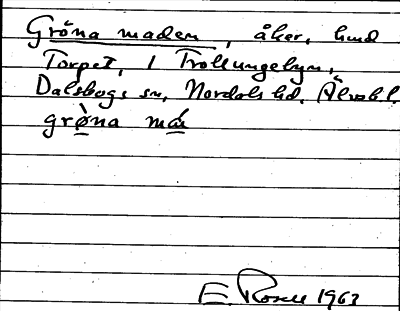 Gröna maden, åker, hmd
Torpet, 1 Trollungebyn,
Dalskogs sn, Nordals hd, Älvsb.l.
grø̀na má
E. Rosell 1963